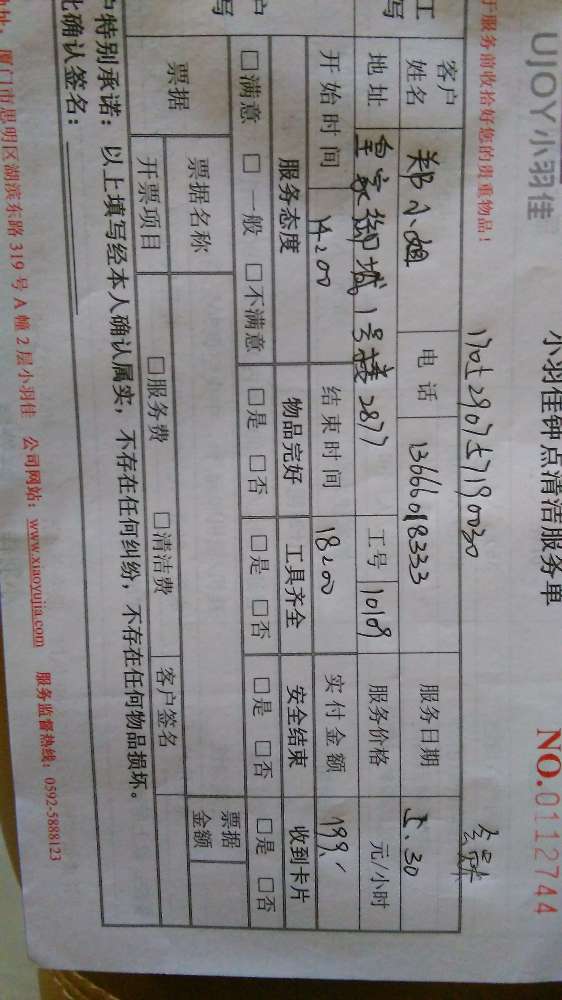 UJOY小羽佳
小羽佳钟点清洁服务单
NO.0112744
于服务前收拾好您的贵重物品！
客户姓名 郑小姐 电话 13666018333 服务日期 5.30
地址 御城1号楼2877 工号 1019 服务价格 元/小时
开始时间 14:00 结束时间 18:00 实付金额 199.
服务态度 物品完好 工具齐全 安全结束 收到卡片
□满意 □一般 □不满意 □是 □否 □是 □否 □是 □否 □是 □否
票据 票据名称 票据金额
开票项目 □服务费 □清洁费 客户签名
户特别承诺：以上填写经本人确认属实，不存在任何纠纷，不存在任何物品损坏。
此确认签名：
厦门市思明区湖滨东路319号A幢2层小羽佳 公司网站：www.xiaoyujia.com 服务监督热线：0592-5888123